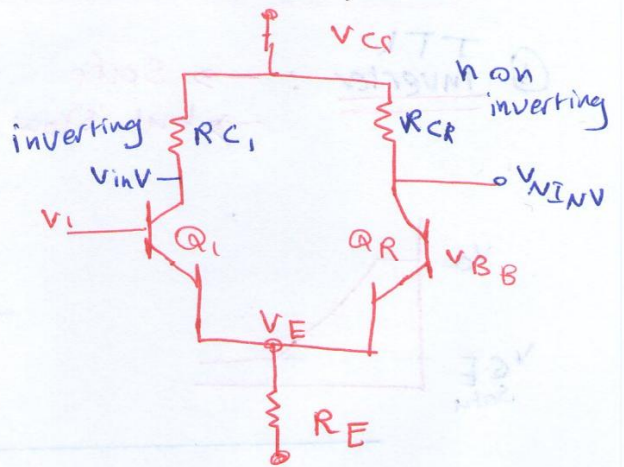 VCC
non
inverting
inverting
RC1
RCR
VinV
VNINV
V1
Q1
QR
VBB
VE
RE